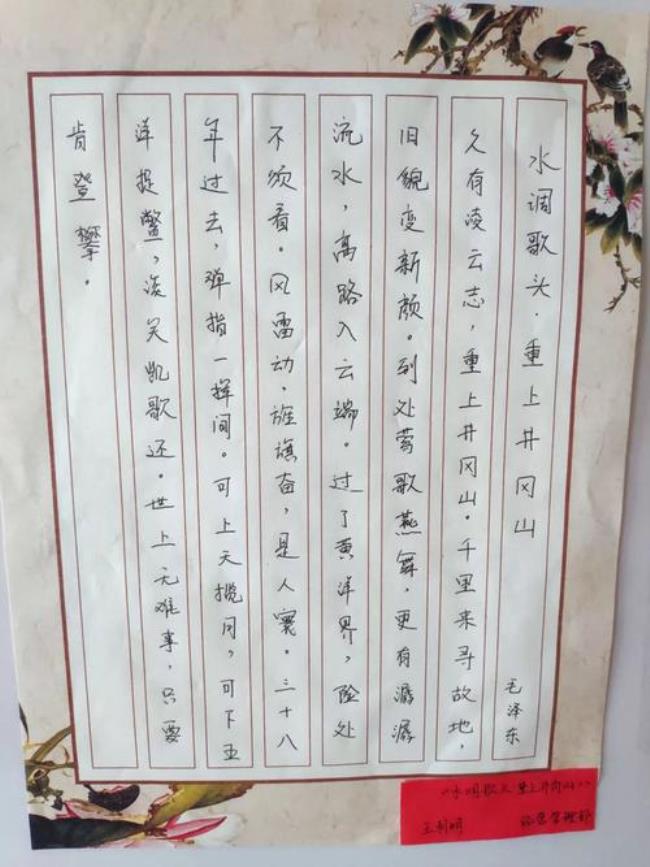 水调歌头·重上井冈山
毛泽东
久有凌云志，重上井冈山。千里来寻故地，
旧貌变新颜。到处莺歌燕舞，更有潺潺
流水，高路入云端。过了黄洋界，险处
不须看。风雷动，旌旗奋，是人寰。三十八
年过去，弹指一挥间。可上天揽月，可下五
洋捉鳖，谈笑凯歌还。世上无难事，只要
肯登攀。
《水调歌头 重上井冈山》
管理部